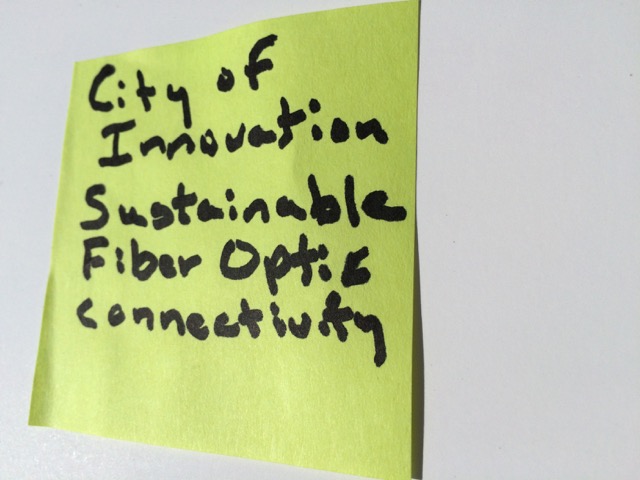 City of
Innovation
Sustainable
Fiber Optic
connectivity